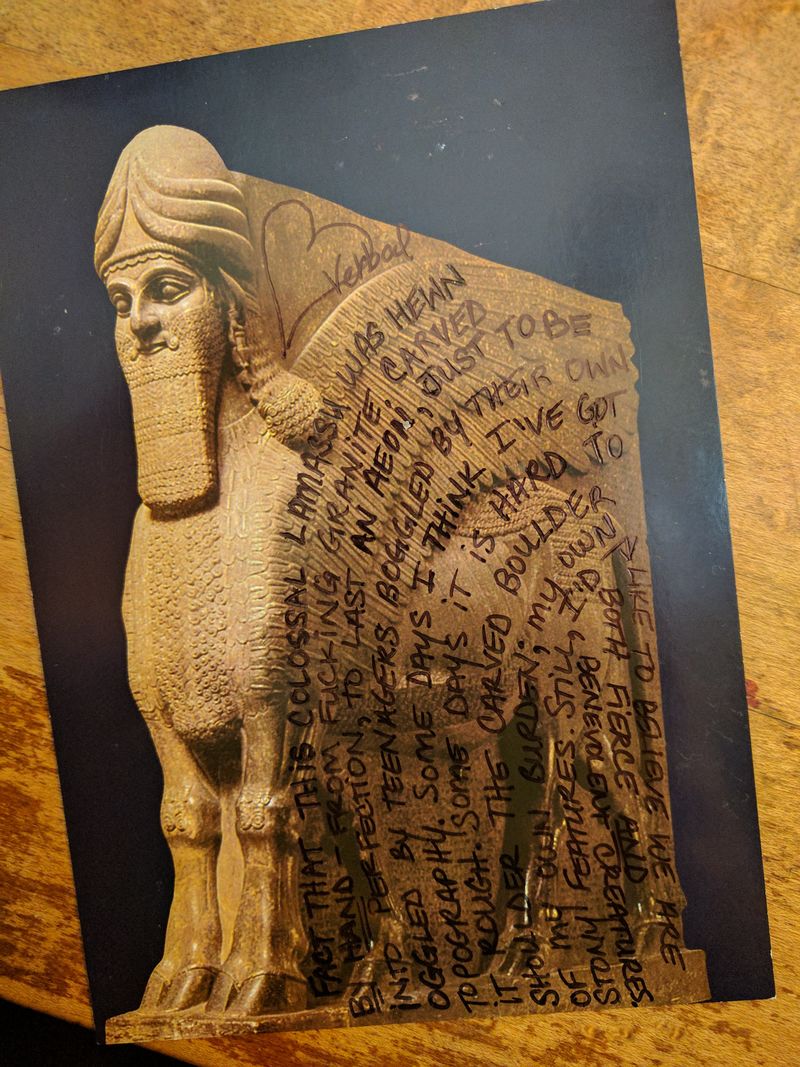 FACT THAT THIS COLOSSAL LAMASSU WAS HEWN
BY HAND - FROM FUCKING GRANITE, CARVED
INTO PERFECTION, TO LAST AN AEON, JUST TO BE
OGGLED BY TEENAGERS BOGGLED BY THEIR OWN
TOPOGRAPHY. SOME DAYS I THINK I'VE GOT
IT ROUGH. SOME DAYS IT IS HARD TO
SHOULDER THE CARVED BOULDER
OF MY OWN BURDEN; MY OWN
STONY FEATURES. STILL, I'D
LIKE TO BELIEVE WE ARE
BOTH FIERCE AND
BENEVOLENT CREATURES.
Verbal